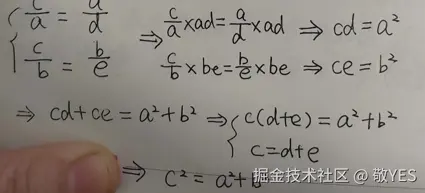 { c/a = a/d ⇒ c/a × ad = a/d × ad ⇒ cd = a²
{ c/b = b/e c/b × be = b/e × be ⇒ ce = b²
⇒ cd + ce = a² + b² ⇒ { c(d+e) = a² + b²
c = d + e
⇒ c² = a² + b²
掘金技术社区 @ 敬YES